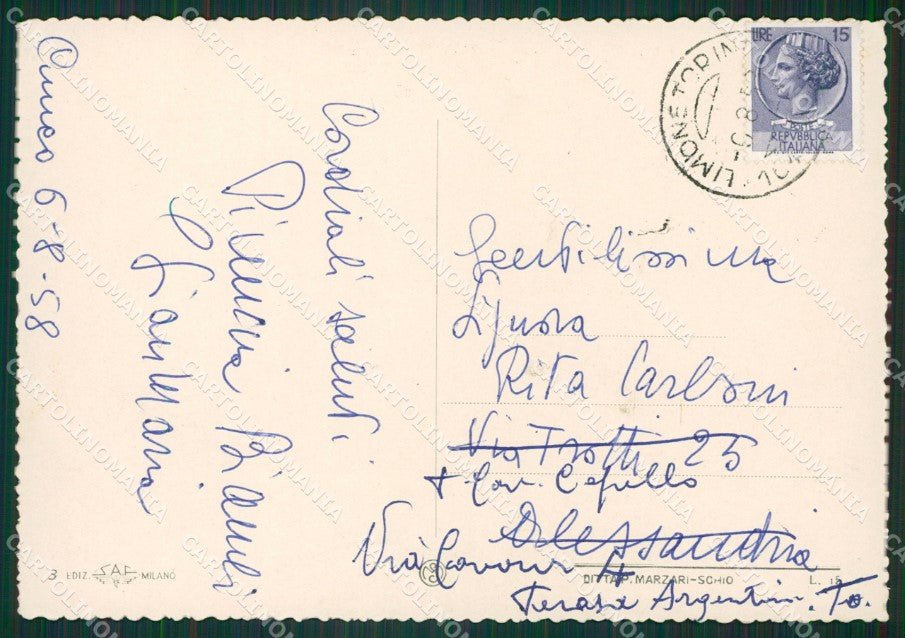 6-8-58
Cordiali saluti.
Pierina Bianchi
Gian Maria
LIRE 15
POSTE
REPVBBLICA
ITALIANA
LIMONE TORINO
Gentilissima
Signora
Rita Carboni
Via Trotti 25
Alessandria
Via Cavour 4
Argentina. To.
3 EDIZ. SAF MILANO
DITTA P. MARZARI-SCHIO
L. 15
CARTOLINOMANIA